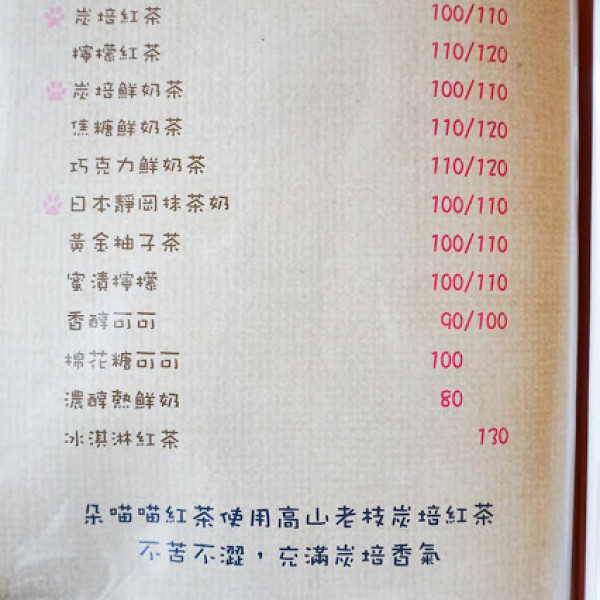 炭培紅茶 100/110
檸檬紅茶 110/120
炭培鮮奶茶 100/110
焦糖鮮奶茶 110/120
巧克力鮮奶茶 110/120
日本靜岡抹茶奶 100/110
黃金柚子茶 100/110
蜜漬檸檬 100/110
香醇可可 90/100
棉花糖可可 100
濃醇熱鮮奶 80
冰淇淋紅茶 130
朵喵喵紅茶使用高山老枝炭培紅茶
不苦不澀，充滿炭培香氣